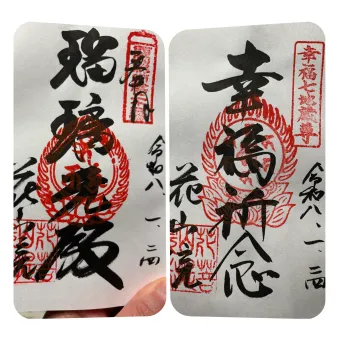 令和八、一、二四
瑠璃光殿
花山院
幸福七地蔵尊
令和八、一、二四
幸福祈念
花山院